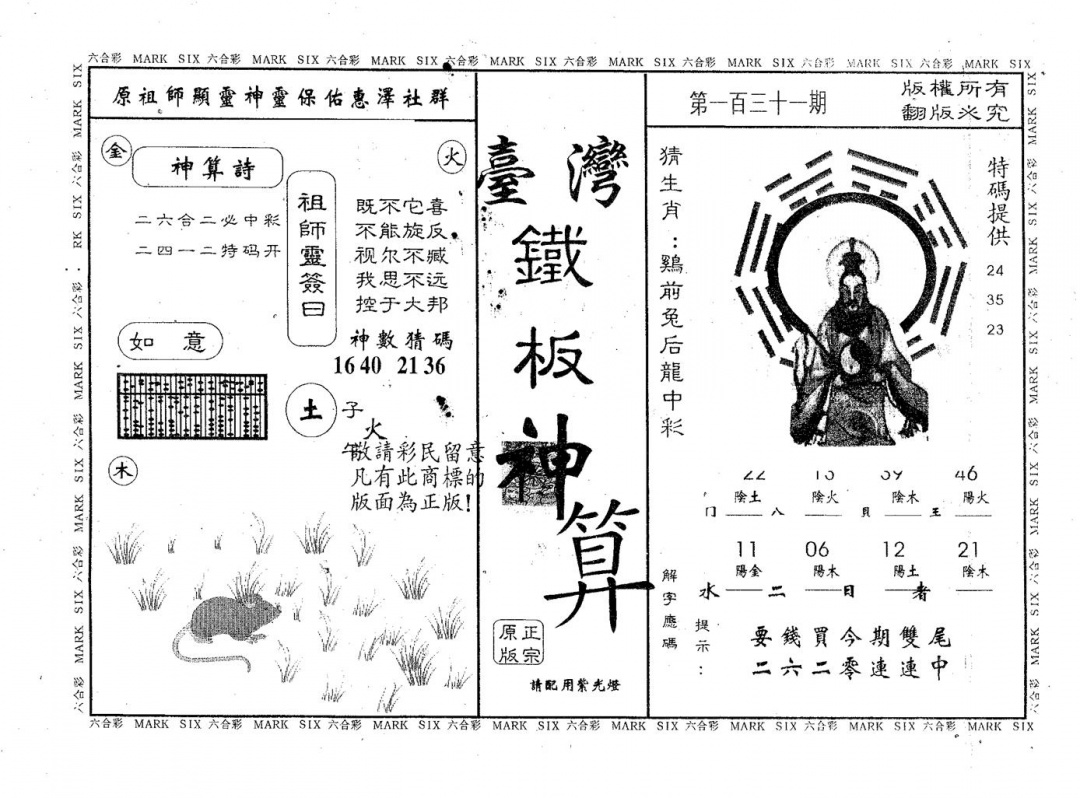 六合彩 MARK SIX 六合彩 MARK SIX 六合彩 MARK SIX 六合彩 MARK SIX 六合彩 MARK SIX 六合彩 MARK SIX 六合彩 MARK SIX 六合彩 MARK SIX
原祖師顯靈神靈保佑惠澤社群
金
火
神算詩
二六合二必中彩
二四一二特码开
祖師靈簽曰
既不它喜
不能旋反
视尔不臧
我思不远
控于大邦
神數猜碼
16 40 21 36
如意
土
子
火
午
木
敬請彩民留意
凡有此商標的
版面為正版!
臺灣
鐵
板
神
算
正宗
原版
請配用紫光燈
第一百三十一期
版權所有
翻版必究
猜生肖:鷄前兔后龍中彩
特碼提供
24
35
23
22 46
陰土 陰火 陰木 陽火
八 貝 王
11 06 12 21
陽金 陽木 陽土 陰木
水 二 日 者
解字應碼
提示:
要錢買今期雙尾
二六二零連連中
六合彩 MARK SIX 六合彩 MARK SIX 六合彩 MARK SIX 六合彩 MARK SIX 六合彩 MARK SIX 六合彩 MARK SIX 六合彩 MARK SIX 六合彩 MARK SIX